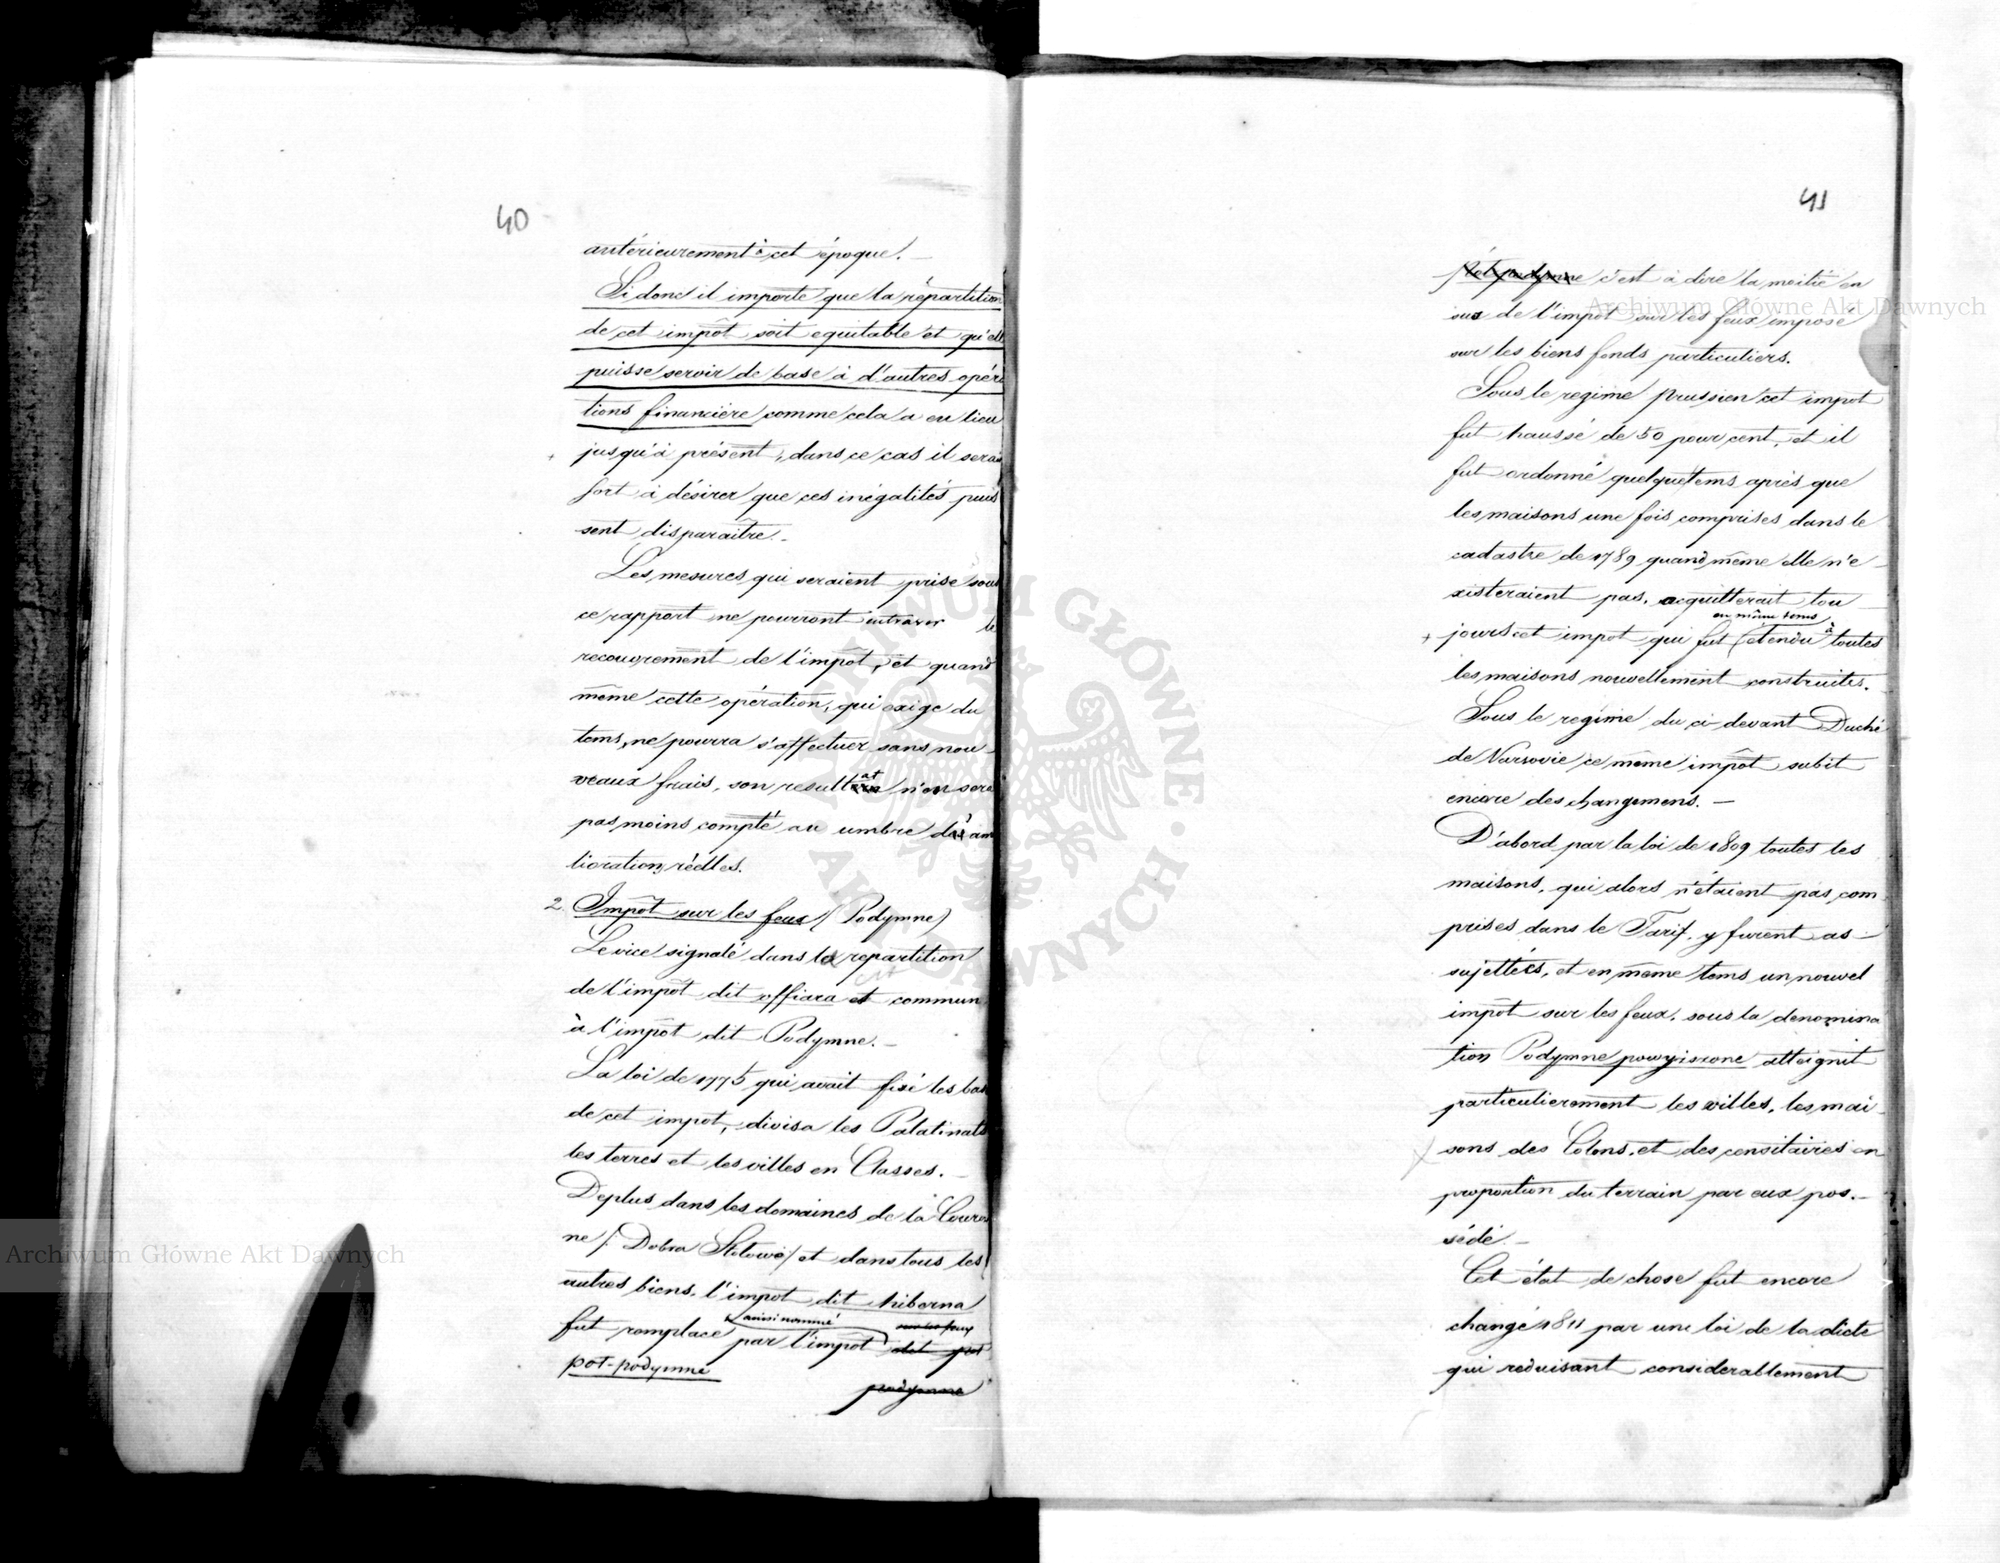 40
antérieurement à cet époque. —
Si donc il importe que la répartition
de cet impôt soit equitable et qu'elle
puisse servir de base à d'autres opéra
tions financière comme cela a eu lieu
+ jusqu'à présent, dans ce cas il serai
fort à désirer que ces inégalités puis
sent disparaitre. -
Les mesures qui seraient prise sous
ce rapport ne pourront entraver le
recouvrement de l'impôt, et quand
même cette opération, qui exige du
tems, ne pourra s'affectuer sans nou -
veaux frais, son resultat n'en sera
pas moins compté au umbre d'am
lioration réelles.
2. Impôt sur les feux /( Podymne)
Le vice signalé dans la repartition
de l'impôt dit offiara et commun
à l'impôt dit Podymne. —
La loi de 1775 qui avait fixé les bas
de cet impot, divisa les Palatinats
les terres et les villes en Classes. —
Deplus dans les domaines de la Couron
ne /: Dobra Stolowe/ et dans tous les
autres biens, l'impot dit hiberna
ainsi nommé sur les feux
fut remplacé par l'impôt dit pot
pot-podymne
podymne
41
Pot podymne c'est à dire la moitié en
sus de l'impôt sur les feux imposé
sur les biens fonds particuliers.
Sous le regime prussien cet impot
fut haussé de 50 pour cent, et il
fut ordonné quelquetems après que
les maisons une fois comprises dans le
cadastre de 1789 quand même elle n'e -
xisteraient pas, acquitterait tou -
en même tems
+ jours cet impot qui fut étendu à toutes
les maisons nouvellement construites.
Sous le regime du ci-devant Duché
de Varsovie ce même impôt subit
encore des changemens. —
D'abord par la loi de 1809 toutes les
maisons, qui alors n'étaient pas com
prises dans le Tarif, y furent as -
sujettées, et en même tems un nouvel
impôt sur les feux, sous la denomina
tion Podymne powyiszone atteignit
particulierement les villes, les mai -
sons des Colons, et des censitaires en
proportion du terrain par eux pos. -
sédé. —
Cet état de chose fut encore
changé 1811 par une loi de la diete
qui reduisant considerablement
Archiwum Główne Akt Dawnych
Archiwum Główne Akt Dawnych
ARCHIWUM GŁÓWNE · AKT DAWNYCH ·